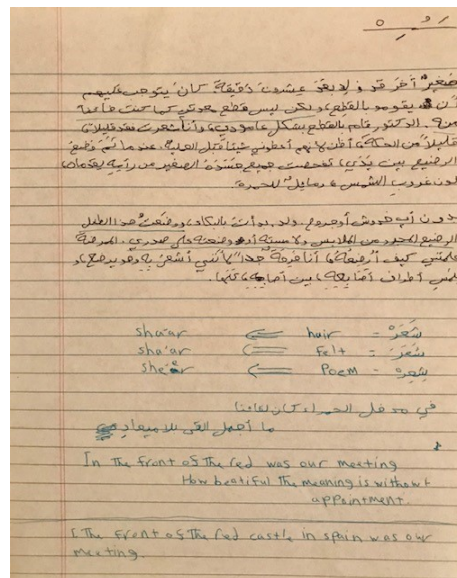 صغير آخر قد ولد بعد عشرون دقيقة. كان يتوجب عليهم
أن يقومو بالقطع، ولكن ليس قطع معدتي كما كنت خائفة
منه. الدكتور قام بالقطع بشكل عامودي، وأنا شعرت فقد قليلا
قليلاً من الحكة، أظن لانهم أعطوني شيئا قبل العملية. عندما تم وضع
الرضيع بين يدي، تفحصت جميع
لون غروب الشمس
بدون أي خدوش أو جروح. ولد بدأت بالبكاء، وضعت هذا الطفل
الرضيع المجرد من الملابس ووضعته على صدري. الممرضة
علمتني كيف أرضعه، أنا فرحة جداً لأنني أشعر به وهو يرضع، و
ألمس أطراف أصابعه بين أصابعي
شَعَرْ - hair ⇐ sha'ar
شَعَرَ - Felt ⇐ sha'ar
شِعِرْ - Poem ⇐ she'er
في مدخل الحمراء كان لقاءنا
ما أجمل القى بلا ميعاد
In the front of the red was our meeting
How beatiful the meaning is without
appointment.
I. The front of the red castle in spain was our
meeting.